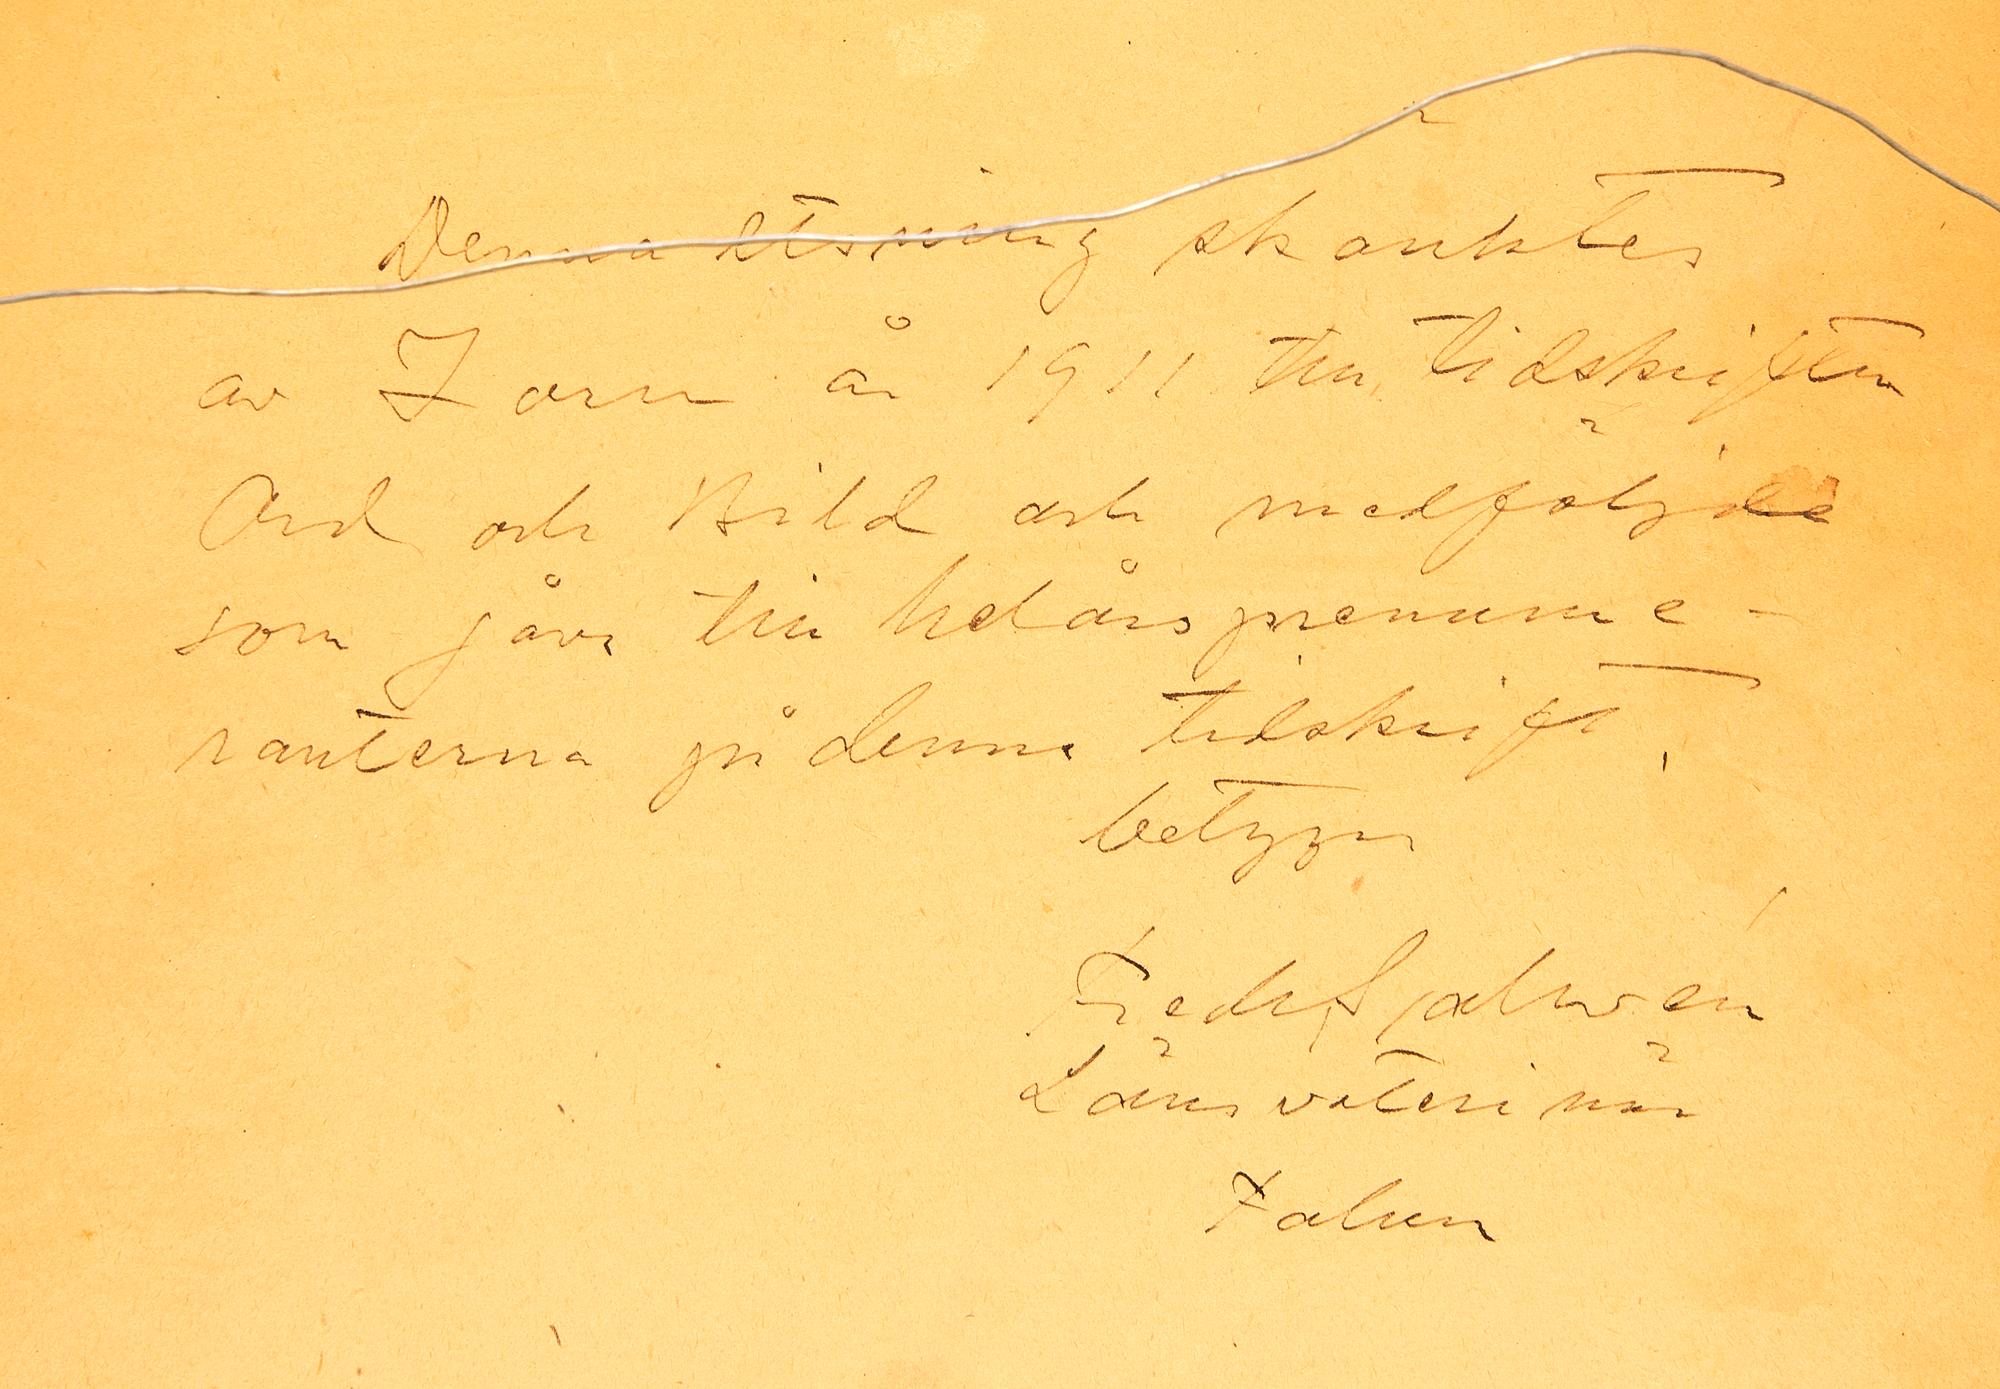 Denna etsning skänktes
av Zorn år 1911 till tidskriften
Ord och Bild och medföljde
som gåva till helårsprenume-
ranterna på denna tidskrift,
betygar
Fredr Sjalwén
Länsveterinär
Falun